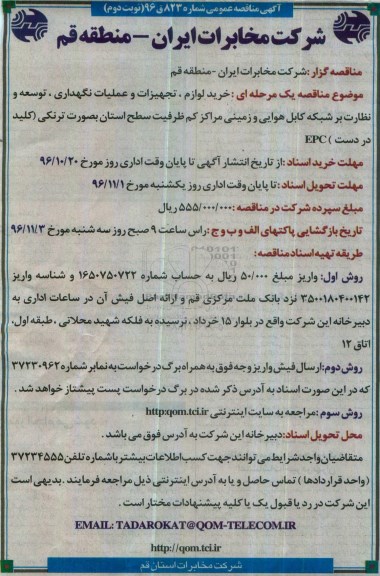 آگهی مناقصه عمومی شماره ۸۲۳ ق ۹۶ (نوبت دوم)
شرکت مخابرات ایران – منطقه قم
مناقصه گزار : شرکت مخابرات ایران - منطقه قم
موضوع مناقصه یک مرحله ای : خرید لوازم ، تجهیزات و عملیات نگهداری ، توسعه و
نظارت بر شبکه کابل هوایی و زمینی مراکز کم ظرفیت سطح استان بصورت ترنکی (کلید
در دست ) EPC
مهلت خرید اسناد : از تاریخ انتشار آگهی تا پایان وقت اداری روز مورخ ۹۶/۱۰/۲۰
مهلت تحویل اسناد : تا پایان وقت اداری روز یکشنبه مورخ ۹۶/۱۱/۱
مبلغ سپرده شرکت در مناقصه : ۵۵۵/۰۰۰/۰۰۰ ریال
تاریخ بازگشایی پاکتهای الف و ب و ج : راس ساعت ۹ صبح روز سه شنبه مورخ ۹۶/۱۱/۳
طریقه تهیه اسناد مناقصه:
روش اول: واریز مبلغ ۵۰/۰۰۰ ریال به حساب شماره ۱۶۵۰۷۵۰۷۲۲ و شناسه واریز
۳۵۰۰۱۸۰۴۰۰۱۴۲ نزد بانک ملت مرکزی قم و ارائه اصل فیش آن در ساعات اداری به
دبیرخانه این شرکت واقع در بلوار ۱۵ خرداد ، نرسیده به فلکه شهید محلاتی ، طبقه اول،
اتاق ۱۲
روش دوم: ارسال فیش واریز وجه فوق به همراه برگ درخواست به نمابر شماره ۳۷۲۳۰۹۶۲
که در این صورت اسناد به آدرس ذکر شده در برگ درخواست پست پیشتاز خواهد شد .
روش سوم : مراجعه به سایت اینترنتی http:qom.tci.ir
محل تحویل اسناد: دبیرخانه این شرکت به آدرس فوق می باشد .
متقاضیان واجد شرایط می توانند جهت کسب اطلاعات بیشتر با شماره تلفن ۳۷۲۳۴۵۵۵
(واحد قراردادها ) تماس حاصل و یا به آدرس اینترنتی ذیل مراجعه فرمایند . بدیهی است
این شرکت در رد یا قبول یک یا کلیه پیشنهادات مختار است .
EMAIL: TADAROKAT@QOM-TELECOM.IR
http://qom.tci.ir
شرکت مخابرات استان قم